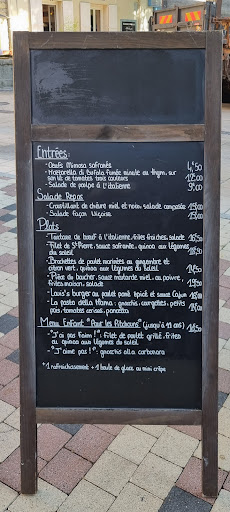 Entrées
- Oeufs Mimosa safranés 4€50
- Mozzarella di bufala fumée minute au thym, sur
son lit de tomates trois couleurs 12€00
- Salade de poulpe à l'italienne 9€00
Salade Repas
- Croustillant de chèvre miel et noix, salade composée 15€00
- Salade façon Niçoise 15€00
Plats
- Tartare de boeuf à l'italienne, frites fraîches, salade 16€50
- Filet de St Pierre, sauce safranée, quinoa aux légumes
du soleil
- Brochettes de poulet marinées au gingembre et
citron vert, quinoa aux légumes du soleil 14€50
- Pièce du boucher, sauce moutarde miel, ou poivre
frites maison, salade
- Louis's burger au poulet pané épicé et sauce Cajun
- La pasta della Mama : gnochis, courgettes, petits
pois, tomates cerises, pancetta
Menu Enfant "Pour les Pitchouns" (jusqu'à 11 ans)
- "J'ai pas faim !": filet de poulet grillé, frites
ou quinoa aux légumes du soleil
- "J'aime pas !": gnochis alla carbonara
* 1 rafraichissement + 1 boule de glace ou mini crêpe